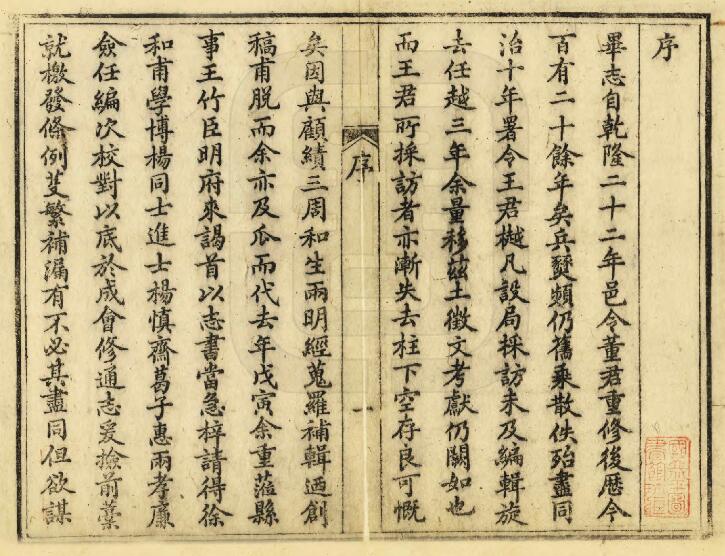 序
畢志自乾隆二十二年邑令董君重修後歷今
百有二十餘年矣兵燹頻仍舊乘散佚殆盡同
治十年署令王君樾凡設局採訪未及編輯旋
去任越三年余量移茲土徵文考獻仍闕如也
而王君所採訪者亦漸失去柱下空存良可慨
序
一
矣因與顧績三周和生兩明經蒐羅補輯迺創
稿甫脫而余亦及瓜而代去年戊寅余重蒞縣
事王竹臣明府來謁首以志書當急梓請得徐
和甫學博楊同士進士楊慎齋葛子惠兩孝廉
僉任編次校對以底於成會修通志爰撿前藁
就檄發條例芟繁補漏有不必其盡同但欲謀